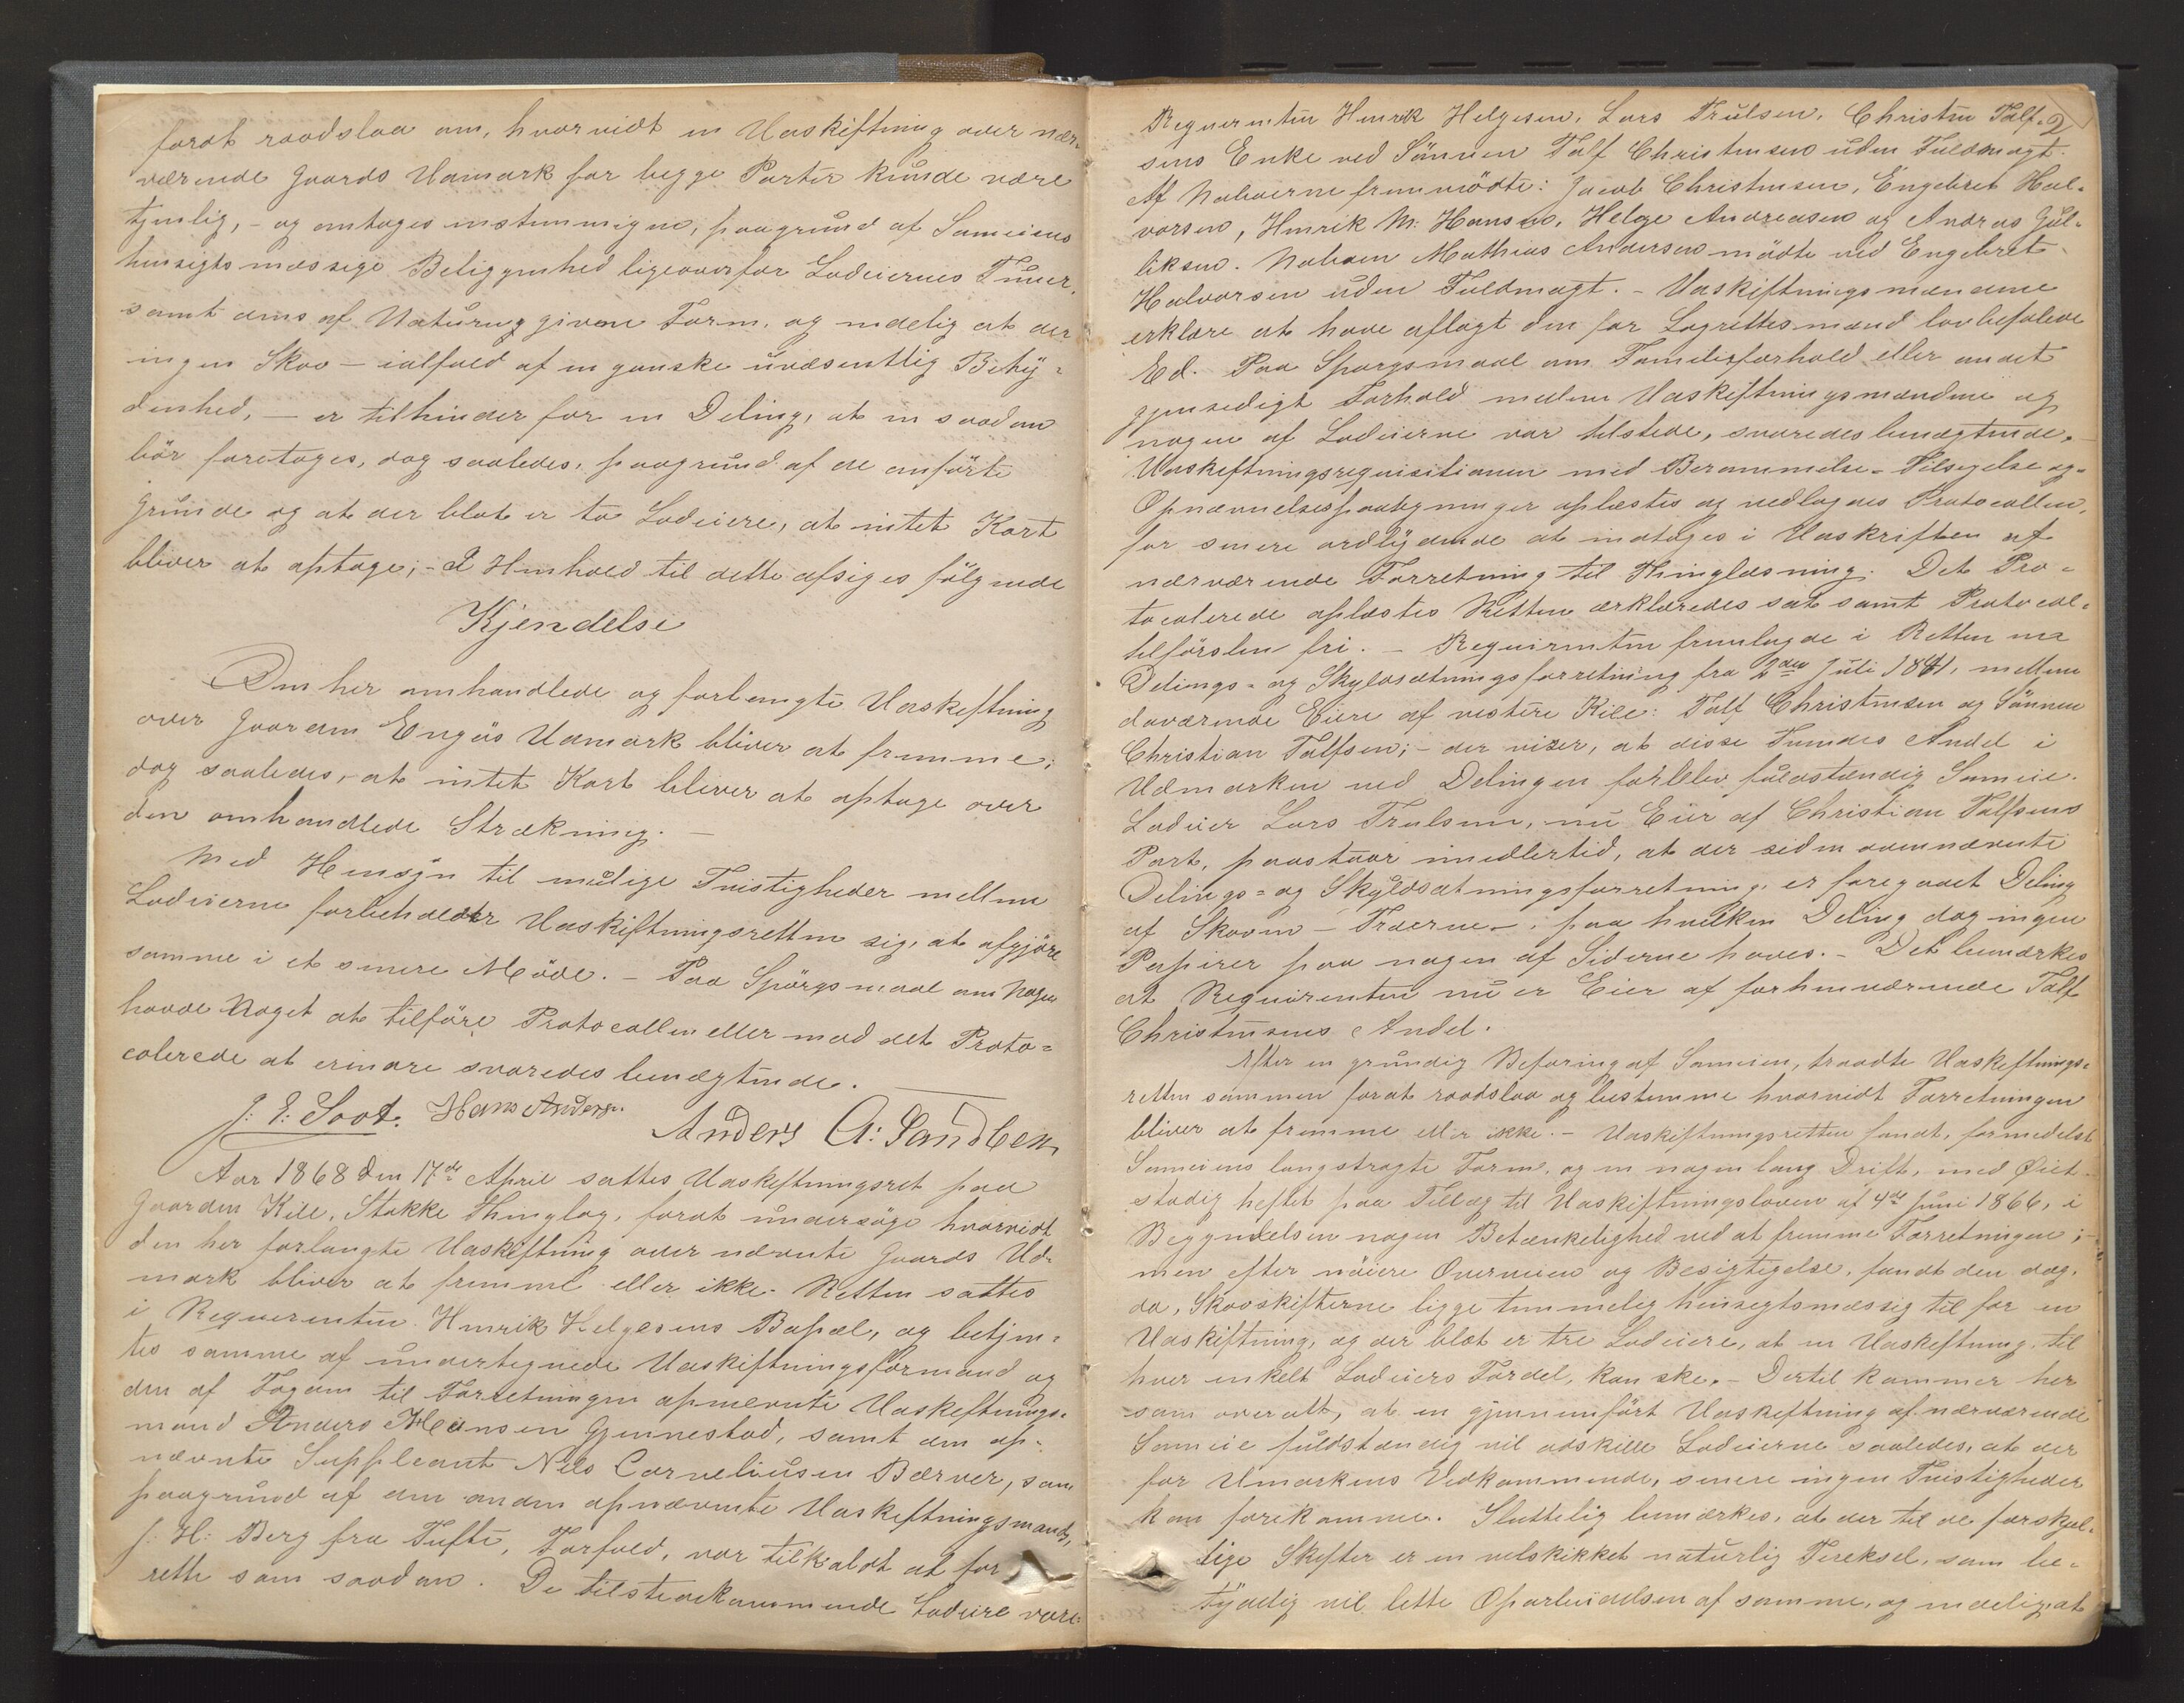 forat raadslaa om, hvorvidt en Udskiftning over nær-
værende Gaards Udmark for begge Parter kunde være
tjenlig, - og antoges enstemmigen, paagrund af Sameiens
hensigtsmæssige Beliggenhed ligeoverfor Lodeiernes Tuner,
samt dens af Naturen givne Form, og endelig at der
ingen Skov - ialfald af en ganske uvæsentlig Betÿ-
denhed, - er tilhinder for en Deling, at en saadan
bör foretages, dog saaledes, paagrund af de anförte
Grunde og at der blot er to Lodeiere, at intet Kart
bliver at optage; - I Henhold til dette afsiges fölgende
Kjendelse
Den her omhandlede og forlangte Udskiftning
over Gaarden Engös Udmark bliver at fremme;
dog saaledes, at intet Kart bliver at optage over
den omhandlede Strækning. -
Med Hensÿn til mulige Tvistigheder mellem
Lodeierne forbeholder Udskiftningsretten sig, at afgjöre
samme i et senere Möde. - Paa Spörgsmaal om Nogen
havde Noget at tilföre Protocollen eller mod det Proto-
colerede at erindre svaredes benægtende.
J. E. Soot. Hans Anders. Anders A: Sandben
Aar 1868 den 17de April sattes Udskiftningsret paa
Gaarden Kile, Stokke Thinglag, forat undersöge hvorvidt
den her forlangte Udskiftning over nævnte Gaards Ud-
mark bliver at fremme eller ikke. Retten sattes
i Reqverenten Henrik Helgesens Bopæl, og betjen-
tes samme af undertegnede Udskiftningsformand og
den af Fogden til Forretningen opnævnte Udskiftnings-
mand Anders Hansen Gjennestad, samt den op-
nævnte Suppleant Nils Corneliusen Bærver, som
paagrund af den anden opnævnte Udskiftningsmands,
J. H. Berg fra Tufte, Forfald, var tilkaldt at for-
rette som saadan. De tilstedekommende Lodeiere vare:
2
Reqverenten Henrik Helgesen, Lars Trulsen, Christen Tolf-
sens Enke ved Sönnen Tolf Christensen uden Fuldmagt.
Af Naboerne fremmödte: Jacob Christensen, Engebret Hal-
vorsen, Henrik M: Hansen, Helge Andreasen og Andreas Gul-
liksen. Naboen Mathias Andersen mödte ved Engebret
Halvorsen uden Fuldmagt. - Udskiftningsmændene
erklære at have aflagt den for Lagrettesmænd lovbefalede
Ed. Paa Spørgsmaal om Familieforhold eller andet
gjensidigt Forhold mellem Udskiftningsmændene og
nogen af Lodeierne var tilstede, svaredes benægtende. -
Udskiftningsrequisitionen med Berammelse- Tilsigelse og-
Opnævnelsespaategninger oplæstes og vedlagdes Protocollen,
for senere ordlÿdende at indtages i Udskriften af
nærværende Forretning til Thinglæsning. Det Pro-
tocolerede oplæstes Retten erklæredes sat samt Protocol-
tilförslen fri. - Requirenten fremlagde i Retten en
Delings- og Skyldsætningsforretning fra 2den Juli 1841, mellem
daværende Eiere af vestre Kile: Tolf Christensen og Sönnen
Christian Tolfsen; - der viser, at disse Tvendes Andel i
Udmarken ved Delingen forblev fuldstændig Sameie.
Lodeier Lars Trulsen, nu Eier af Christian Tolfsens
Part, paastaar imidlertid, at der siden ovennævnte
Delings- og Skÿldsætningsforretning, er foregaaet Deling
af Skoven - Træerne -, paa hvilken Deling dog ingen
Papirer paa nogen af Siderne haves. - Det bemærkes
at Requirenten nu er Eier af forhenværende Tolf
Christensens Andel.
Efter en grundig Befaring af Sameien, traadte Udskiftnings-
retten sammen forat raadslaa og bestemme hvorvidt Forretningen
bliver at fremme eller ikke. - Udskiftningsretten fandt, formedelst
Sameiens langstragte Form, og en nogen lang Drift, med Øiet
stadig heftet paa Tillæg til Udskiftningsloven af 4de Juni 1866, i
Begyndelsen nogen Betænkelighed ved at fremme Forretningen;
men efter nöiere Overveien og Besigtigelse, fandt den dog,
da, Skovskifterne ligge temmelig hensigtsmæssig til for en
Udskiftning, og der blot er tre Lodeiere, at en Udskiftning, til
hver enkelt Lodeiers Fordel, kan ske. - Dertil kommer her
som overalt, at en gjennemfört Udskiftning af nærværende
Sameie fuldstændig vil adskille Lodeierne saaledes, at der
for Udmarkens Vedkommende, senere ingen Tvistigheder
kan forekomme. Sluttelig bemærkes, at der til de forskjel-
lige Skifter er en velskikket naturlig Tereksel, som be-
tÿdelig vil lette Oparbeidelsen af samme, og endelig, at